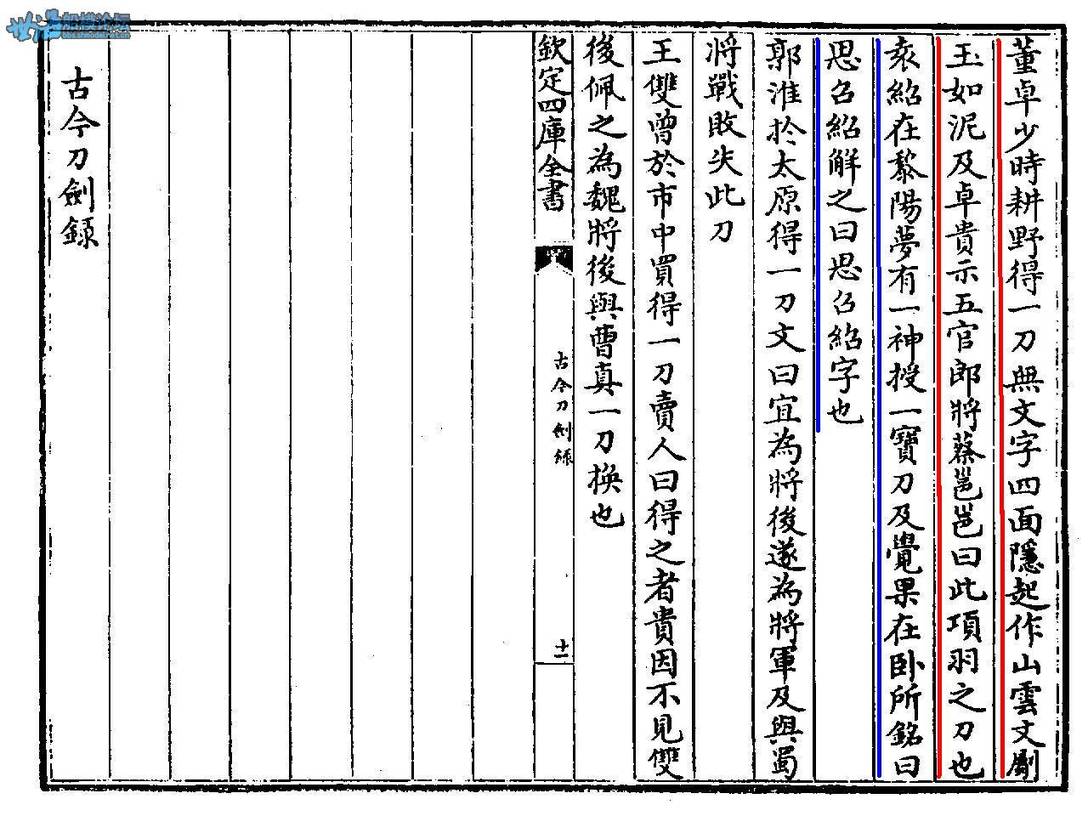 董卓少時耕野得一刀無文字四面隱起作山雲文劚
玉如泥及卓貴示五官郎將蔡邕邕曰此項羽之刀也
袁紹在黎陽夢有一神授一寶刀及覺果在卧所銘曰
思召紹解之曰思召紹字也
郭淮於太原得一刀文曰宜為將後遂為將軍及與蜀
將戰敗失此刀
王雙曾於市中買得一刀賣人曰得之者貴因不見雙
後佩之為魏將後與曹真一刀換也
欽定四庫全書
古今刀劍録
十一
古今刀劍録
船模论坛